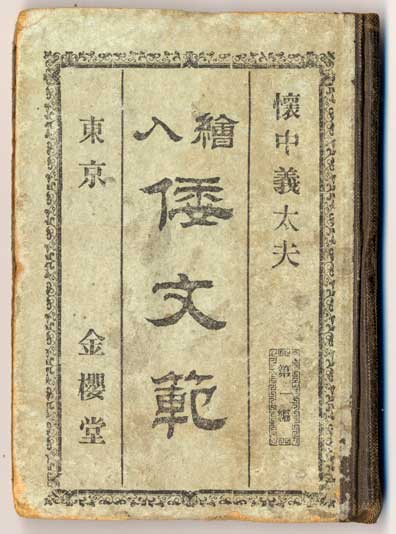 懷中義太夫
第一編
繪入
倭文範
東京 金櫻堂